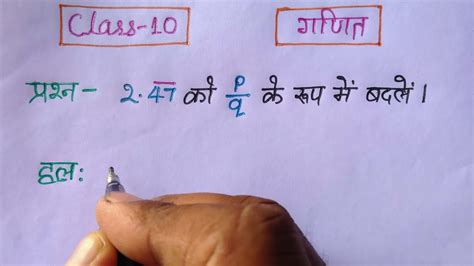 Class-10 गणित
प्रश्न- 2.4̅7̅ को p/q के रूप में बदलें।
हलः